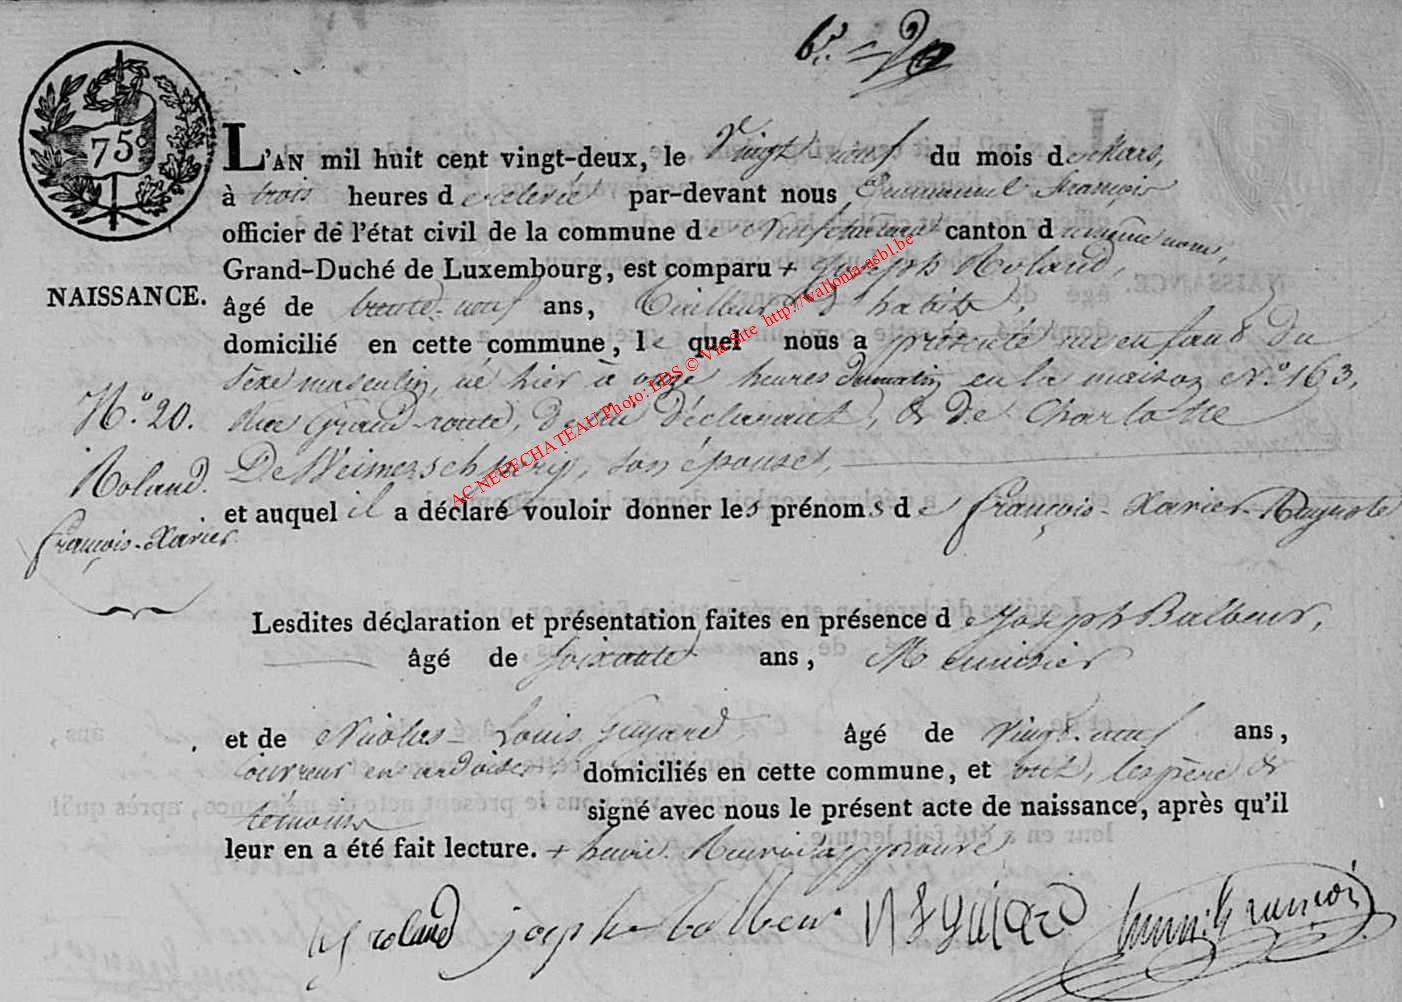 75c
NAISSANCE.
L'AN mil huit cent vingt-deux, le Vingt neuf du mois de Mars,
à trois heures de relevée par-devant nous Emmanuel François
officier de l'état civil de la commune de Neufchateau canton du même nom,
Grand-Duché de Luxembourg, est comparu + Joseph Roland,
âgé de trente-neuf ans, Tailleur d'habits,
domicilié en cette commune, le quel nous a présenté un enfant du
Sexe masculin, né hier à onze heures du matin en la maison N.° 163,
Rue Grand-route, de lui déclarant, & de Charlotte
De Weimerschkirg, son épouse,
et auquel il a déclaré vouloir donner les prénoms de François-Xavier-Auguste
N.° 20.
Roland.
François-Xavier
Lesdites déclaration et présentation faites en présence de Joseph Balbeur,
âgé de soixante ans, Menuisier
et de Nicolas-Louis Guyard âgé de Vingt-neuf ans,
couvreur en ardoises, domiciliés en cette commune, et ont, les père &
témoins signé avec nous le présent acte de naissance, après qu'il
leur en a été fait lecture. + henri. Renvoi approuvé
roland joseph balbeur N L Guiard Emm. François
AC NEUFCHATEAU Photo: LDS © Via Site http://wallonia-asbl.be